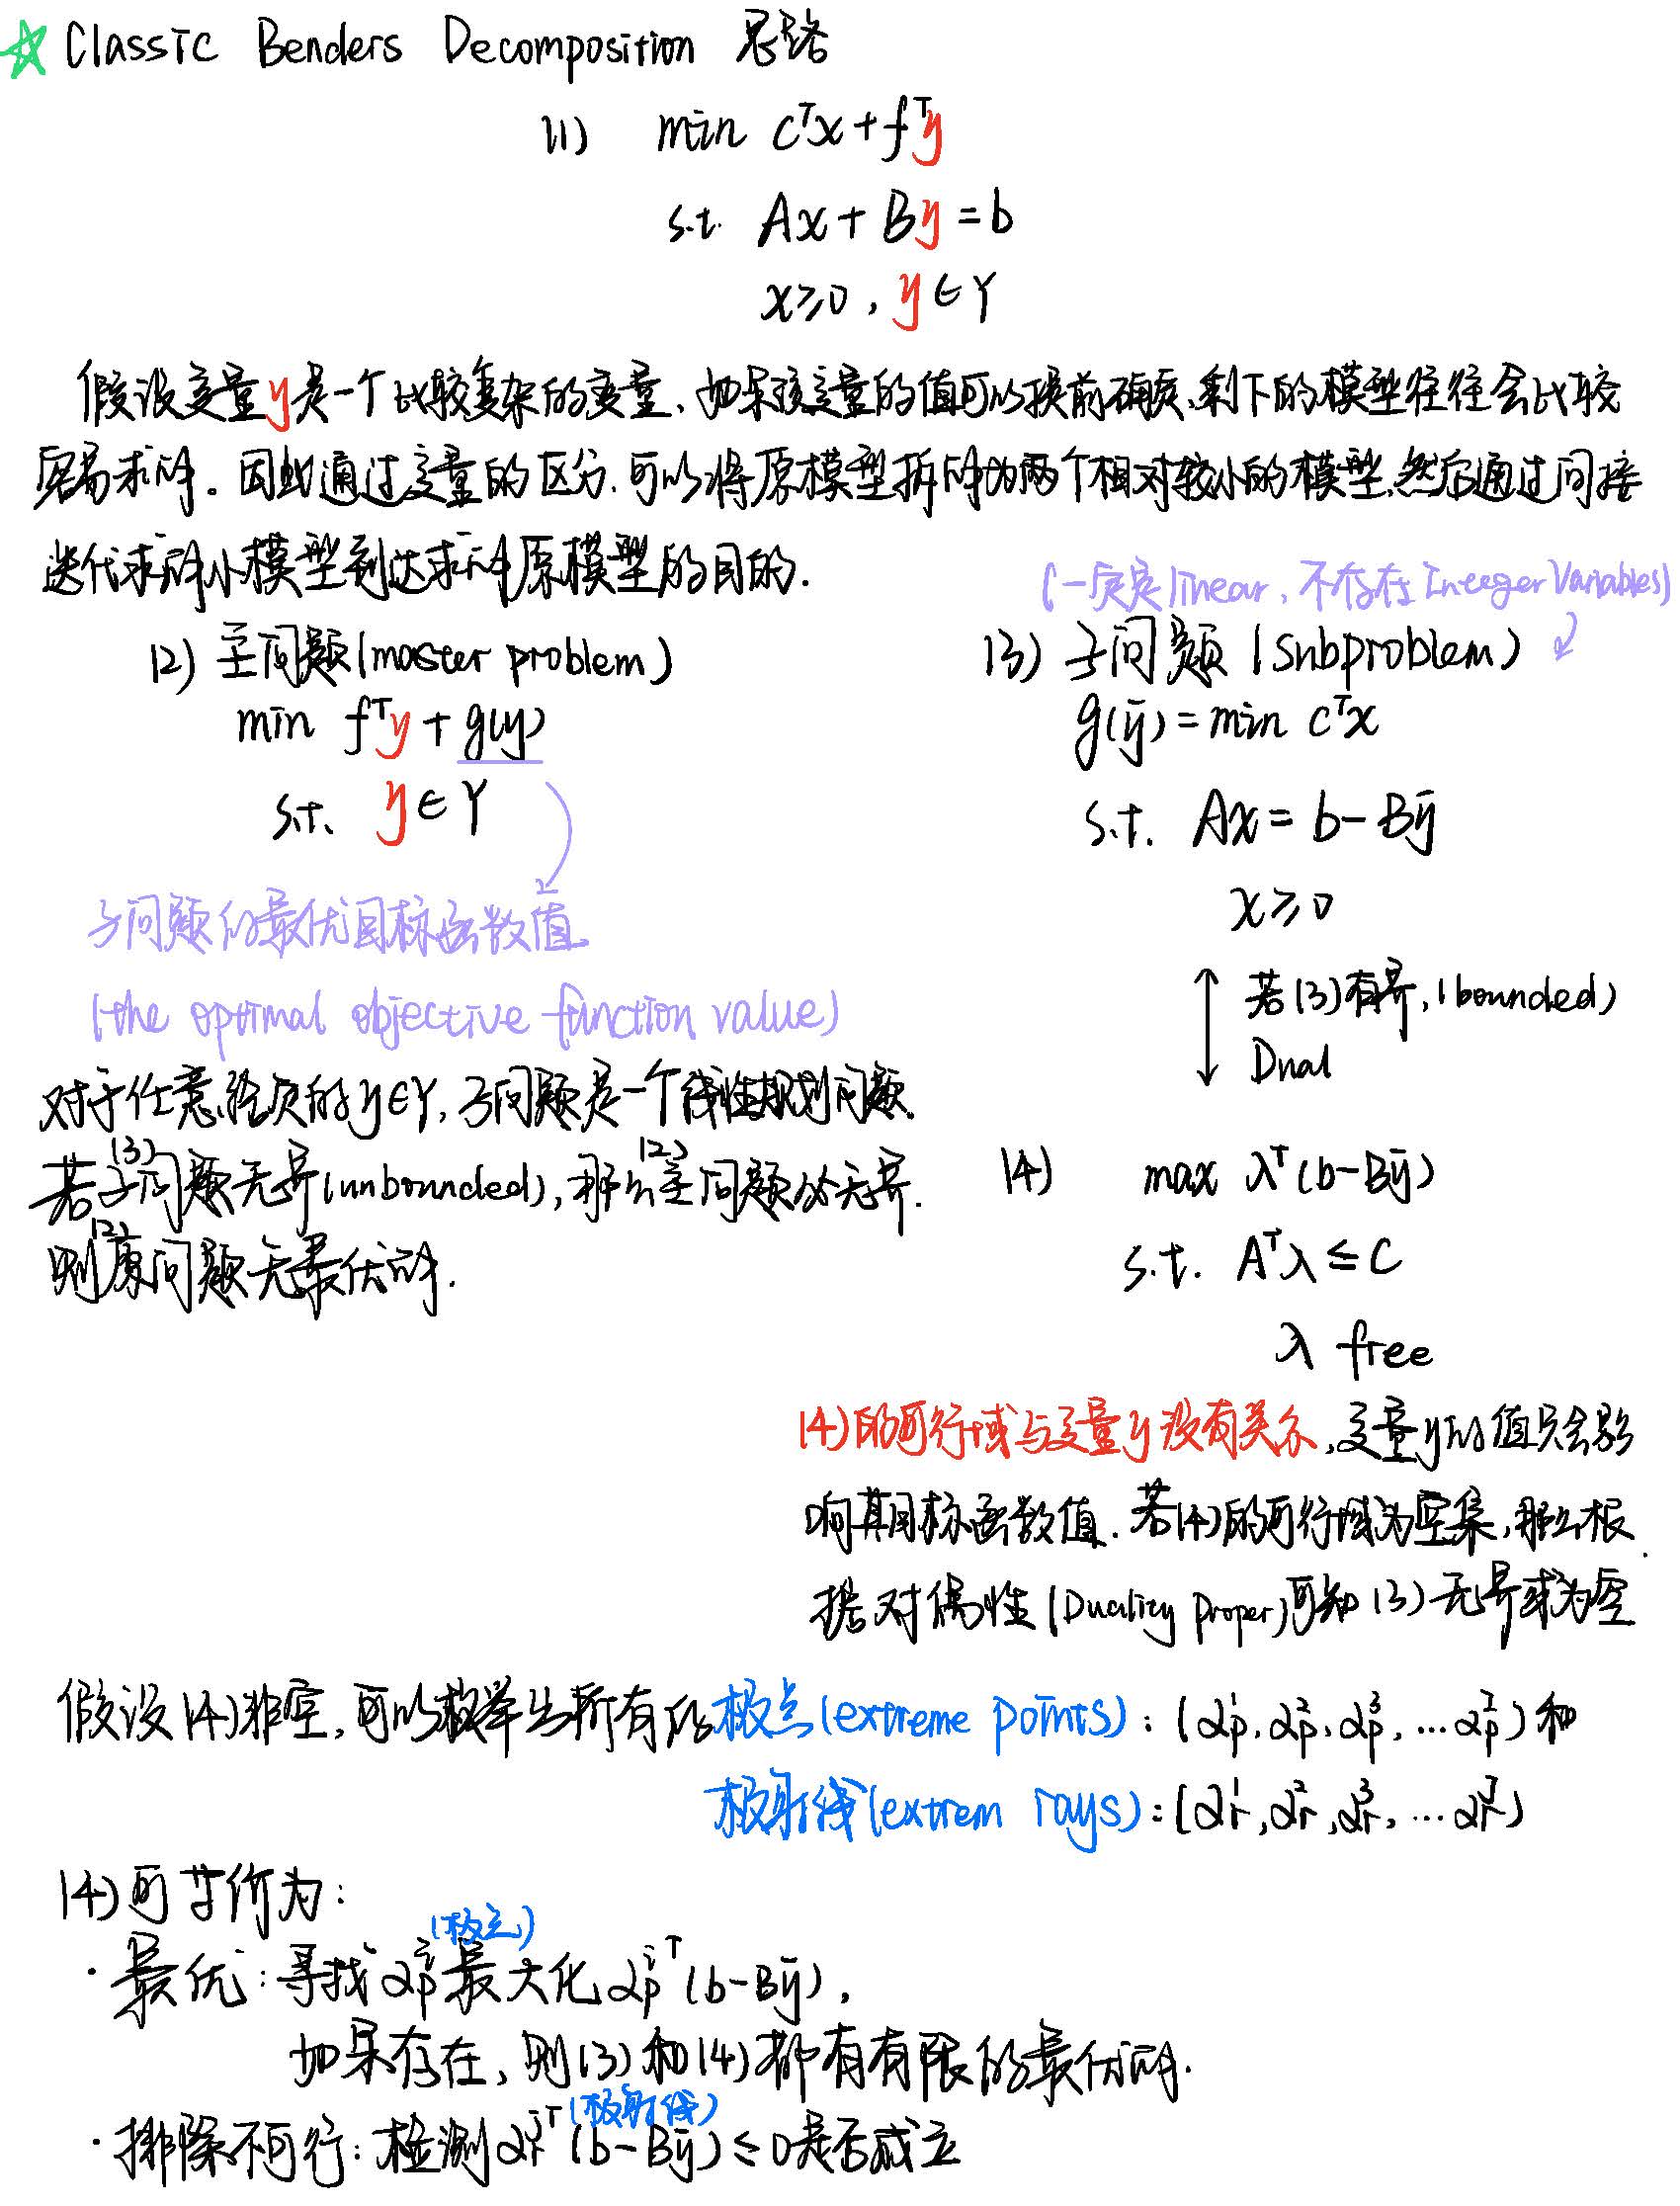 Classic Benders Decomposition 思路
(1) min cᵀx + fᵀy
s.t. Ax + By = b
x ≥ 0, y ∈ Y
假设变量y是一个比较复杂的变量、如果该变量的值可以提前确定,剩下的模型往往会比较
容易求解。因此通过变量的区分,可以将原模型拆解为两个相对较小的模型,然后通过间接
迭代求解小模型到达求解原模型的目的.
(一定是linear, 不存在Integer Variables)
(2) 主问题(master problem)
min fᵀy + g(y)
s.t. y ∈ Y
子问题的最优目标函数值
(the optimal objective function value)
对于任意给定的y∈Y, 子问题是一个线性规划问题.
若子问题(3)无界(unbounded), 那么主问题(2)必无界.
则原问题(2)无最优解.
(3) 子问题 (Subproblem)
g(ȳ) = min cᵀx
s.t. Ax = b - Bȳ
x ≥ 0
若(3)有界, (bounded)
Dual
(4) max λᵀ(b-Bȳ)
s.t. Aᵀλ ≤ C
λ free
(4)的可行域与变量y没有关系,变量y的值只会影
响其目标函数值. 若(4)的可行域为空集, 那么根
据对偶性(Duality Proper)可知(3)无界或为空.
假设(4)非空, 可以枚举出所有的极点(extreme points): (αp¹, αp², αp³, ... αpᴵ) 和
极射线(extrem rays): (αr¹, αr², αr³, ... αrᴶ)
(4)可等价为:
· 最优: 寻找αpⁱ(极点)最大化 αpⁱᵀ(b-Bȳ),
如果存在, 则(3)和(4)都有有限的最优解.
· 排除不可行: 检测αrʲᵀ(极射线)(b-Bȳ) ≤ 0是否成立